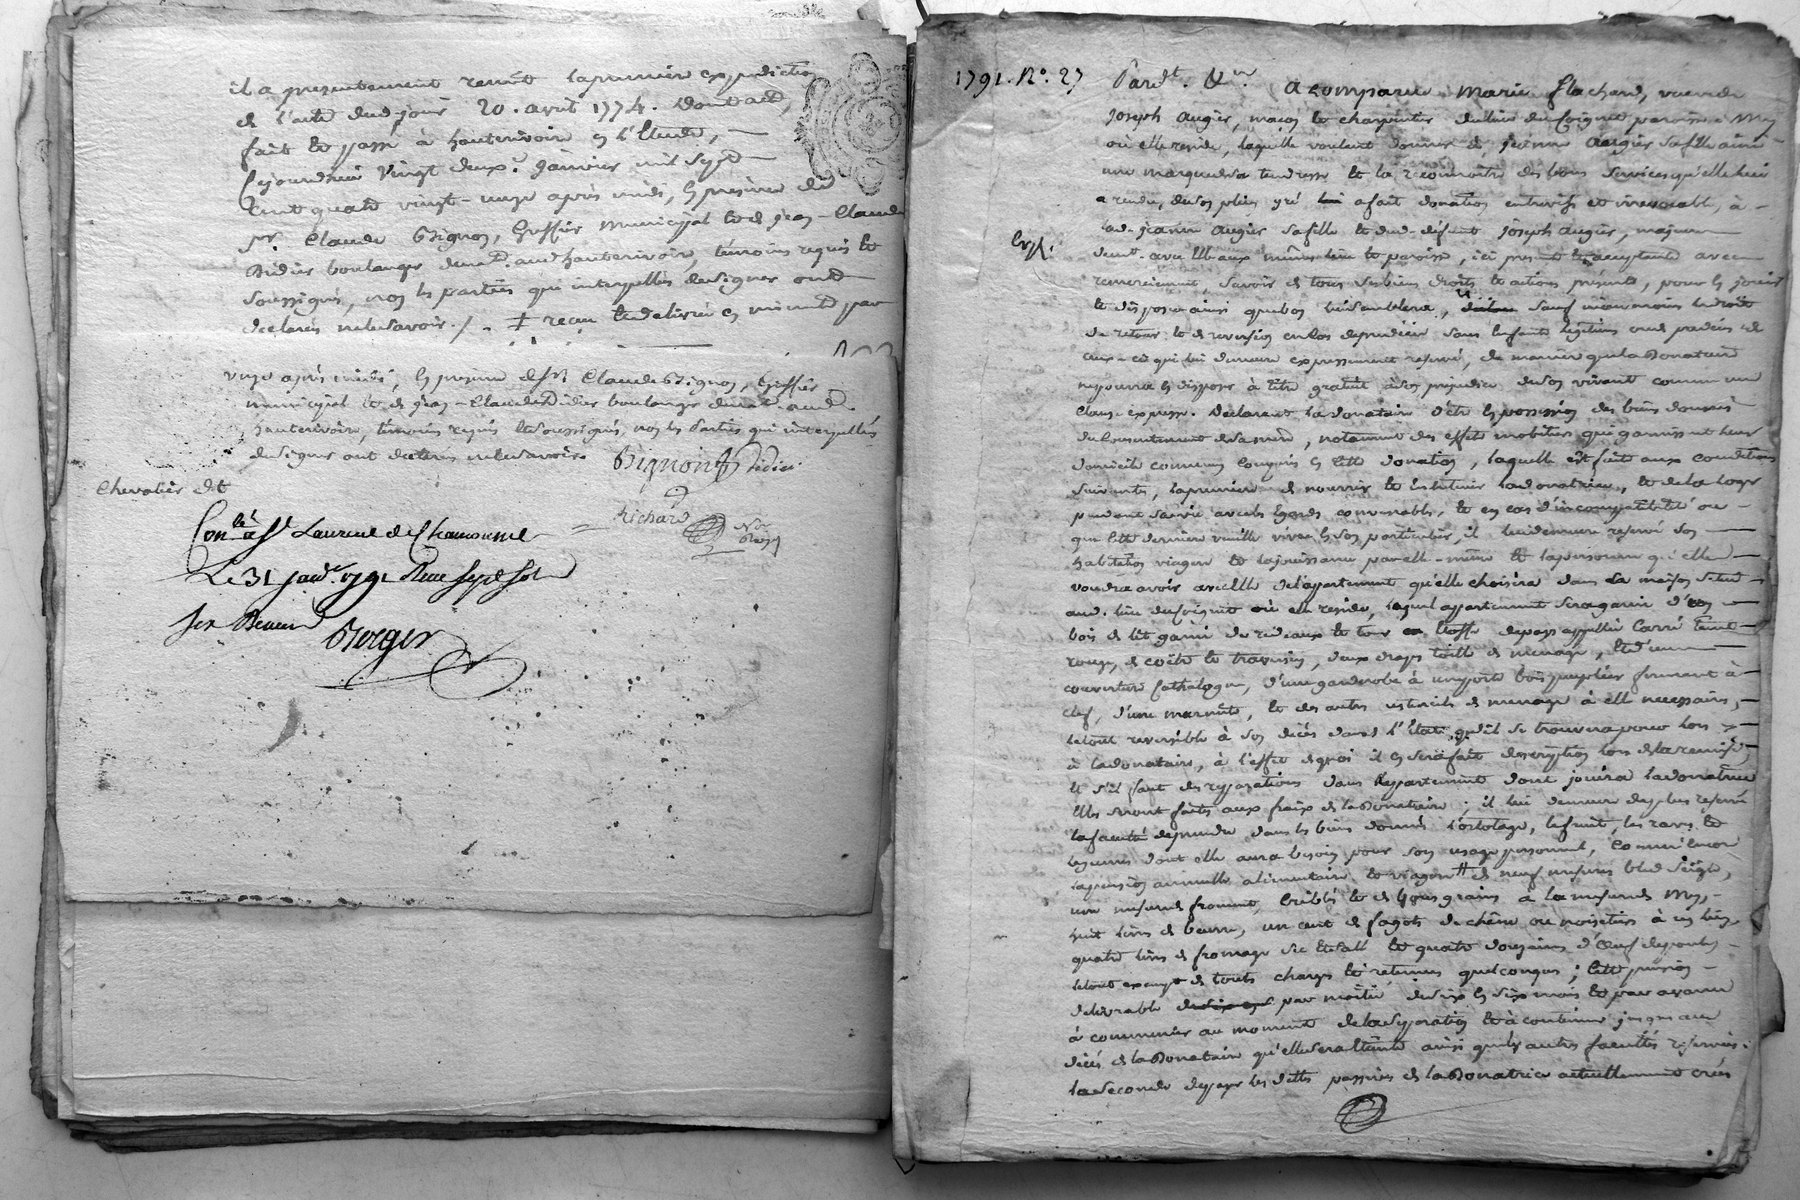 il a presentement remis la premiere expedition
de l'acte dud. jour 20. avril 1774. Dont acte,
fait et passé à hauterivoire en l'Etude,
cejourdhui vingt deux Janvier mil sept
cent quatre vingt-onze après midi, en presence de
Sr. Claude Bignon, Greffier municipal et de jean-Claude
Didier boulanger demt. aud hauterivoire, témoins requis et
soussignés, non les parties qui interpellées de signer ont
declaré ne le savoir ./. ‡ reçu et delivré en minute par
onze après midi, en presence de Sr Claude Bignon, Greffier
municipal et de jean-Claude Didier boulanger demt. aud.
hauterivoire, témoins requis et soussignés, non les Parties qui interpellées
de signer ont declaré ne le savoir.
Bignon Gff Didier
Richard
Nre
Chevalier
Conlé à St Laurent de Chamousset
Le 31 janv. 1791 Reçu
Berger
1791. No. 27
Pardt. acomparue Marie flachard, veuve de
Joseph Augier, maçon et charpentier du lieu du Soignet paroisse de Mey
où elle reside, laquelle voulant donner à jeanne Augier sa fille ainée
une marque de sa tendresse et la reconnoitre des bons services qu'elle lui
a rendu, de son plein gré a fait donation entrevifs et irrevocable, à
lad. jeanne augier sa fille et dud. défunt joseph augier, majeure
demt. avec elle aux mêmes lieu et paroisse, ici presente et acceptante avec
remerciement, savoir de tous ses biens droits et actions présents, pour en jouir
et disposer ainsi que bon lui semblera, sauf néanmoins le droit
de retour et de reversion en cas de prédécès sans enfants légitimes
ceux-ci qui lui demeure expressement reservé, de maniere que la Donataire
ne pourra en disposer à titre gratuit à son préjudice de son vivant comme une
clause expresse. Declarant la donataire d'être en possession des biens donnés
du consentement de sa mere, notamment des effets mobiliers qui garnissent leur
domicile commun compris en cette donation, laquelle est faite aux conditions
suivantes, la premiere de nourrir et entretenir la donatrice, et de la loger
pendant sa vie avec les egards convenables, et en cas d'incompatibilité ou
que cette derniere veuille vivre en son particulier, il lui demeure reservé son
habitation viagere et la jouissance par elle-même et la personne qu'elle
voudra avoir avec elle de l'appartement qu'elle choisira dans la maison située
aud. lieu du Soignet où elle reside, lequel appartement sera garni d'un
bois de lit garni de rideaux et tour en étoffe de pays appellée Carré teint
rouge, de coëte et traversin, deux draps toille de menage, et d'une
couverture Cathalogne, d'une garderobe à une porte bois peuplier fermant à
clef, d'une marmite, et des autres ustencils de menage à elle necessaires,
le tout reversible à son décès dans l'état qu'il se trouvera pour lors
à la donataire, à l'effet de quoi il en sera fait description lors de la remise,
et s'il faut des reparations dans l'appartement dont jouira la donatrice
elles seront faites aux fraix de la Donataire ; il lui demeure de plus reservé
la faculté de prendre dans les biens donnés l'ortolage, le fruit, les raves et
legumes dont elle aura besoin pour son usage personnel, comme encor
la pension annuelle alimentaire et viagere de neuf mesures bled seigle,
une mesure froment, criblés et de bons grains à la mesure de Mey,
huit livres de beurre, un cent de fagots de chêne ou noisetiers à un lien,
quatre livres de fromage sec et salé et quatre douzaines d'oeufs de poules
le tout exempt de toutes charges et retenues quelconques ; cette pension
delivrable par moitié de six en six mois et par avance
à commencer au moment de la separation et à continuer jusques au
décès de la Donatrice qu'elle sera éteinte ainsi que les autres facultés reservées.
la seconde de payer les dettes passives de la Donatrice actuellement créés